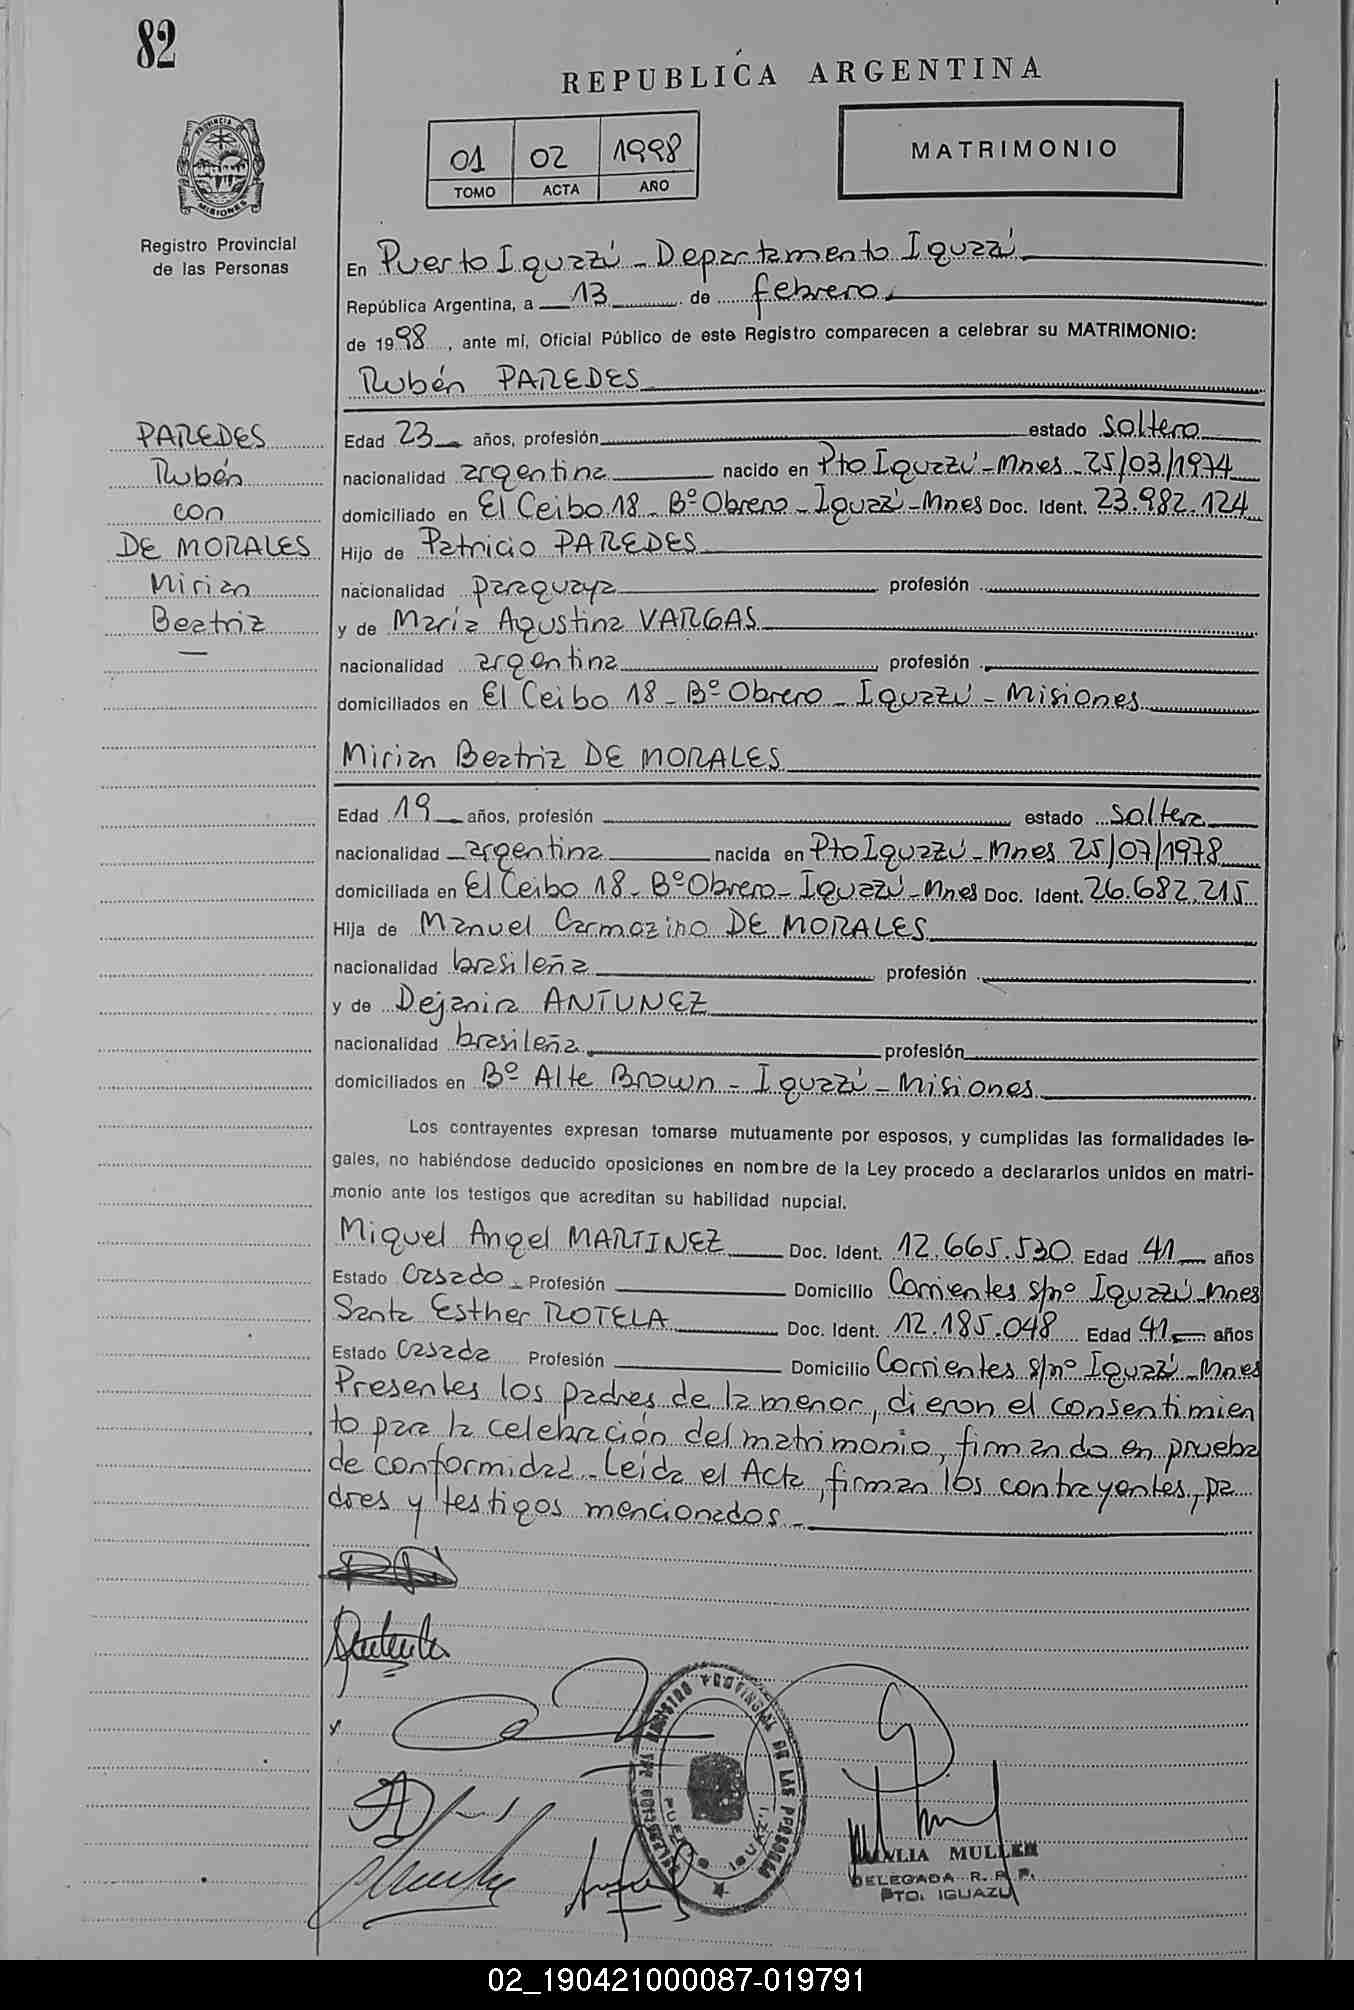 82
REPUBLICA ARGENTINA
01 02 1998
TOMO ACTA AÑO
MATRIMONIO
PROVINCIA DE
MISIONES
Registro Provincial
de las Personas
En Puerto Iguazú - Departamento Iguazú
República Argentina, a 13 de febrero
de 1998, ante mí, Oficial Público de este Registro comparecen a celebrar su MATRIMONIO:
Rubén PAREDES
PAREDES
Rubén
con
DE MORALES
Mirian
Beatriz
Edad 23 años, profesión estado soltero
nacionalidad argentina nacido en Pto Iguazú - Mnes - 25/03/1974
domiciliado en El Ceibo 18 - Bº Obrero - Iguazú - Mnes Doc. Ident. 23.982.124
Hijo de Patricio PAREDES
nacionalidad paraguaya profesión
y de María Agustina VARGAS
nacionalidad argentina profesión
domiciliados en El Ceibo 18 - Bº Obrero - Iguazú - Misiones
Mirian Beatriz DE MORALES
Edad 19 años, profesión estado soltera
nacionalidad argentina nacida en Pto Iguazú - Mnes 25/07/1978
domiciliada en El Ceibo 18 - Bº Obrero - Iguazú - Mnes Doc. Ident. 26.682.215
Hija de Manuel Carmozino DE MORALES
nacionalidad brasileña profesión
y de Dejanira ANTUNEZ
nacionalidad brasileña profesión
domiciliados en Bº Alte Brown - Iguazú - Misiones
Los contrayentes expresan tomarse mutuamente por esposos, y cumplidas las formalidades le-
gales, no habiéndose deducido oposiciones en nombre de la Ley procedo a declararlos unidos en matri-
monio ante los testigos que acreditan su habilidad nupcial.
Miguel Angel MARTINEZ Doc. Ident. 12.665.530 Edad 41 años
Estado casado Profesión Domicilio Corrientes s/nº Iguazú - Mnes
Santa Esther ROTELA Doc. Ident. 12.185.048 Edad 41 años
Estado casada Profesión Domicilio Corrientes s/nº Iguazú - Mnes
Presentes los padres de la menor, dieron el consentimien
to para la celebración del matrimonio, firmando en prueba
de conformidad - Leída el Acta, firman los contrayentes, pa
dres y testigos mencionados -
REGISTRO PROVINCIAL DE LAS PERSONAS
PUERTO IGUAZU
MULLER
DELEGADA R. P. P.
PTO. IGUAZU
02_190421000087-019791